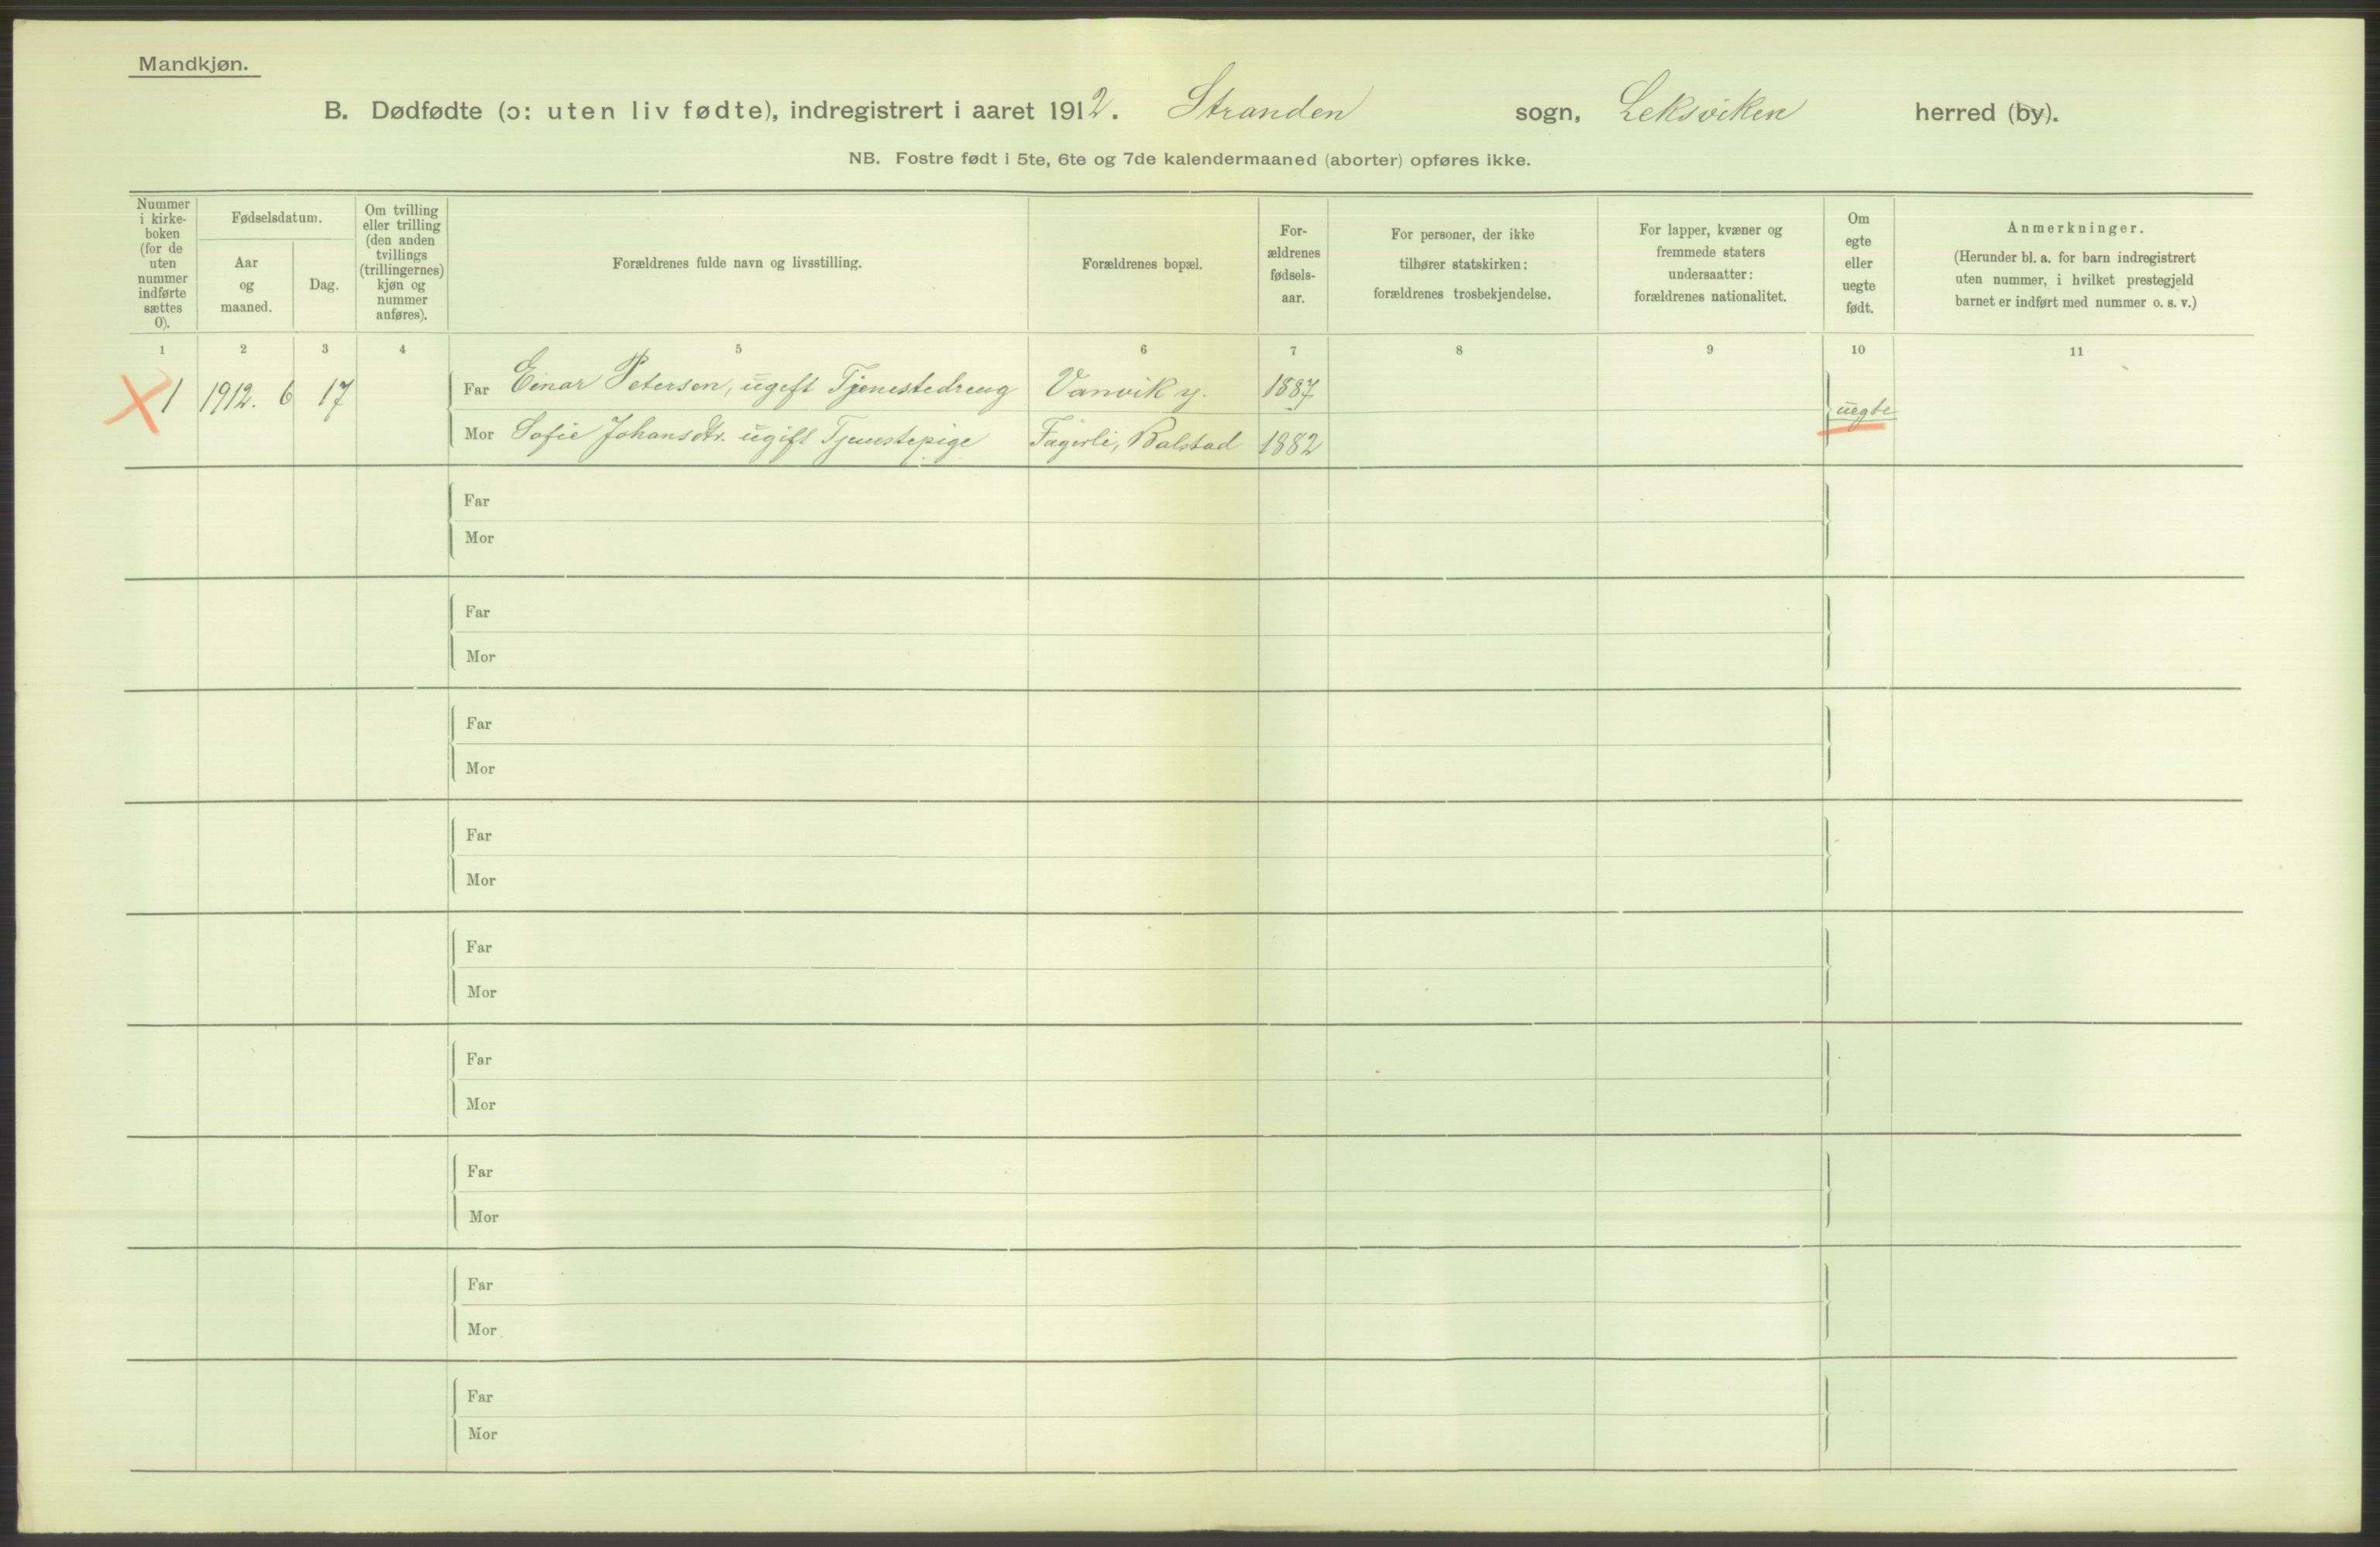 Mandkjøn.
B. Dødfødte (ɔ: uten liv fødte), indregistrert i aaret 1912. Stranden sogn, Leksviken herred (by).
NB. Fostre født i 5te, 6te og 7de kalendermaaned (aborter) opføres ikke.
Nummer
i kirke-
boken
(for de
uten
nummer
indførte
sættes
0).
Fødselsdatum.
Aar
og
maaned.
Dag.
Om tvilling
eller trilling
(den anden
tvillings
(trillingernes)
kjøn og
nummer
anføres).
Forældrenes fulde navn og livsstilling.
Forældrenes bopæl.
For-
ældrenes
fødsels-
aar.
For personer, der ikke
tilhører statskirken:
forældrenes trosbekjendelse.
For lapper, kvæner og
fremmede staters
undersaatter:
forældrenes nationalitet.
Om
egte
eller
uegte
født.
Anmerkninger.
(Herunder bl. a. for barn indregistrert
uten nummer, i hvilket prestegjeld
barnet er indført med nummer o. s. v.)
1 2 3 4 5 6 7 8 9 10 11
1 1912. 6 17 Far Einar Petersen, ugift Tjenestedreng Vanvik y. 1887
uegte
Mor Sofie Johansdtr. ugift Tjenestepige Fagerli, Balstad 1882
Far
Mor
Far
Mor
Far
Mor
Far
Mor
Far
Mor
Far
Mor
Far
Mor
Far
Mor
Far
Mor